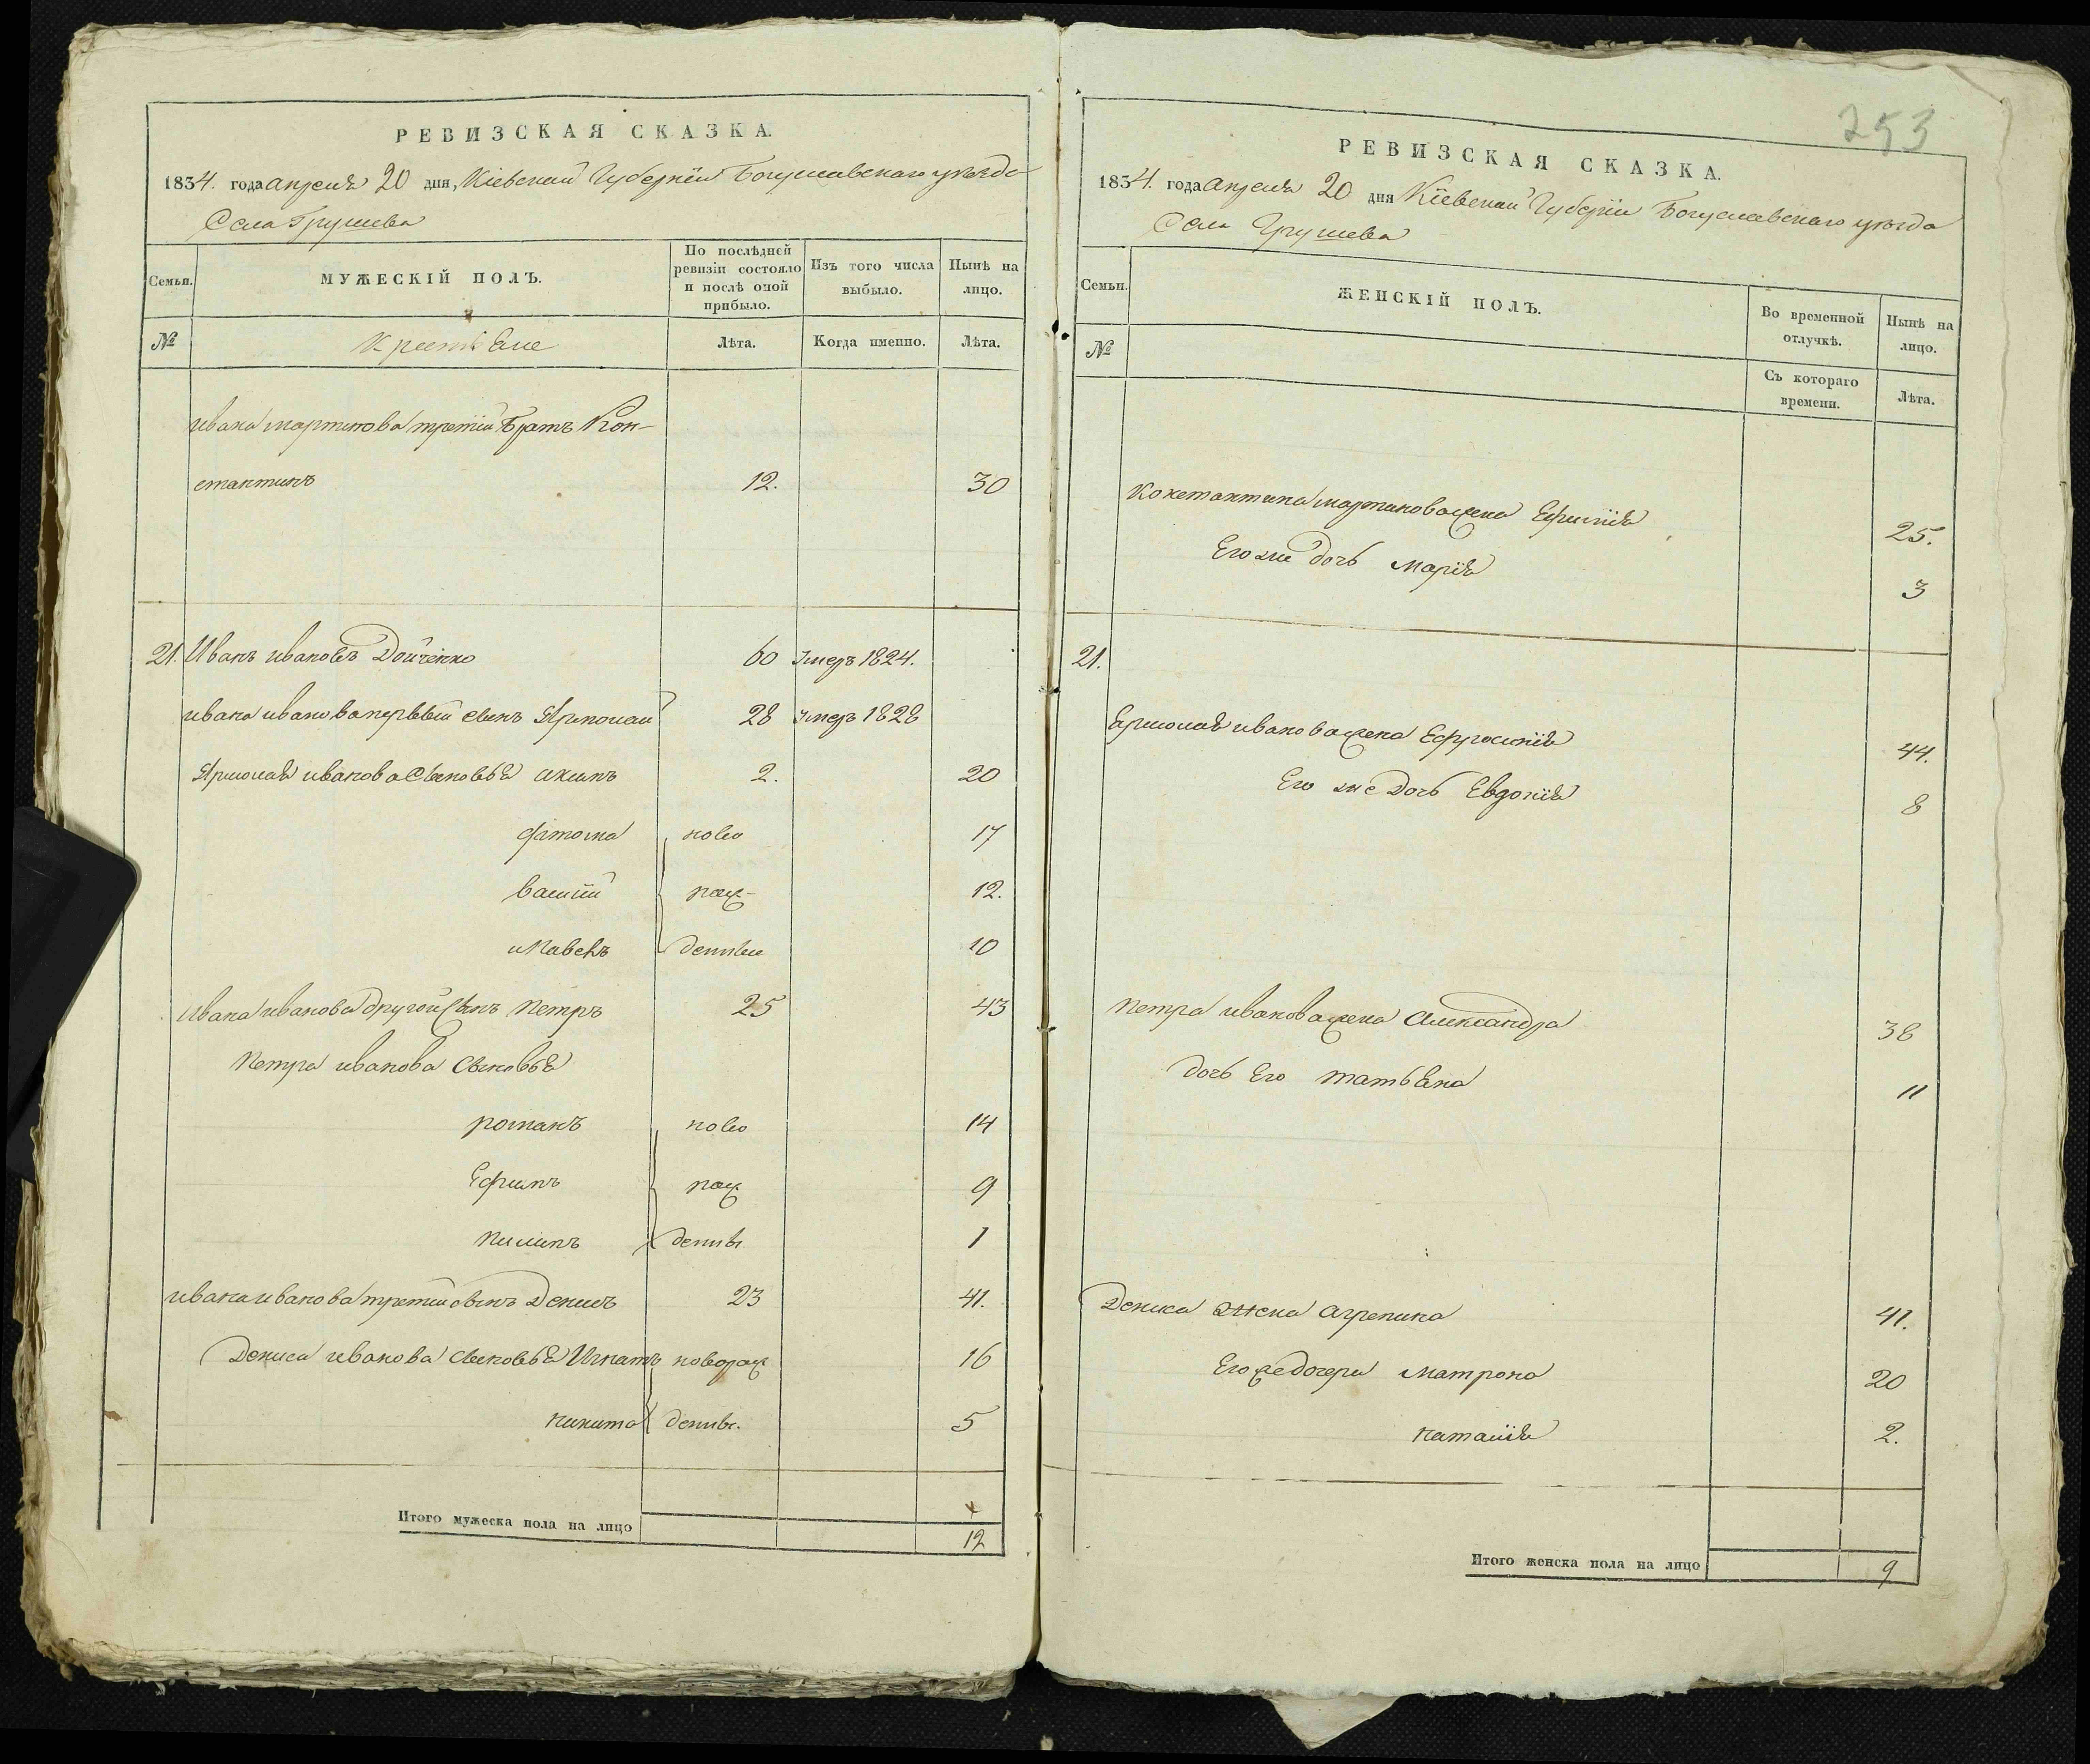 РЕВИЗСКАЯ СКАЗКА.
1834. года апреля 20 дня, Кіевской Губернїи Богуславского уезда
Села Грушева
Семьи.
МУЖЕСКІЙ ПОЛЪ.
По послѣдней ревизіи состояло и послѣ оной прибыло.
Изъ того числа выбыло.
Нынѣ на лицо.
№
Крестьяне
Лѣта.
Когда именно.
Лѣта.
ивана мартинова третїй братъ Кон-
стантинъ 12. 30
21. Иванъ ивановъ Дойченко 60 Умеръ 1824.
ивана иванова первый сынъ Ярмолай 28 умеръ 1828
Ярмолая иванова сыновья акимъ 2. 20
фатома ново 17
васїлїй рож- 12.
и павелъ денные 10
ивана иванова другой сынъ петръ 25 43
петра иванова сыновья
романъ ново 14
Ефимъ рож 9
пилипъ денны 1
ивана иванова третїй сынъ Денисъ 23 41.
Дениса иванова сыновья Игнатъ новорож 16
никита денны. 5
Итого мужеска пола на лицо 12
253
РЕВИЗСКАЯ СКАЗКА.
1834. года апреля 20 дня Кїевской Губерїи Богуславского уезда
Села Грушева
Семьи.
ЖЕНСКІЙ ПОЛЪ.
Во временной отлучкѣ.
Нынѣ на лицо.
№
Съ котораго времени.
Лѣта.
Константина мартинова жена Ефимїя 25.
Его же дочь марїя 3
21.
Ермолая иванова жена Ефросинїя 44.
Его же дочь Евдокїя 8
петра иванова жена Александра 38
дочь Его татьяна 11
Дениса жена агрепина 41.
Его же дочери матрона 20
наталїя 2.
Итого женска пола на лицо 9